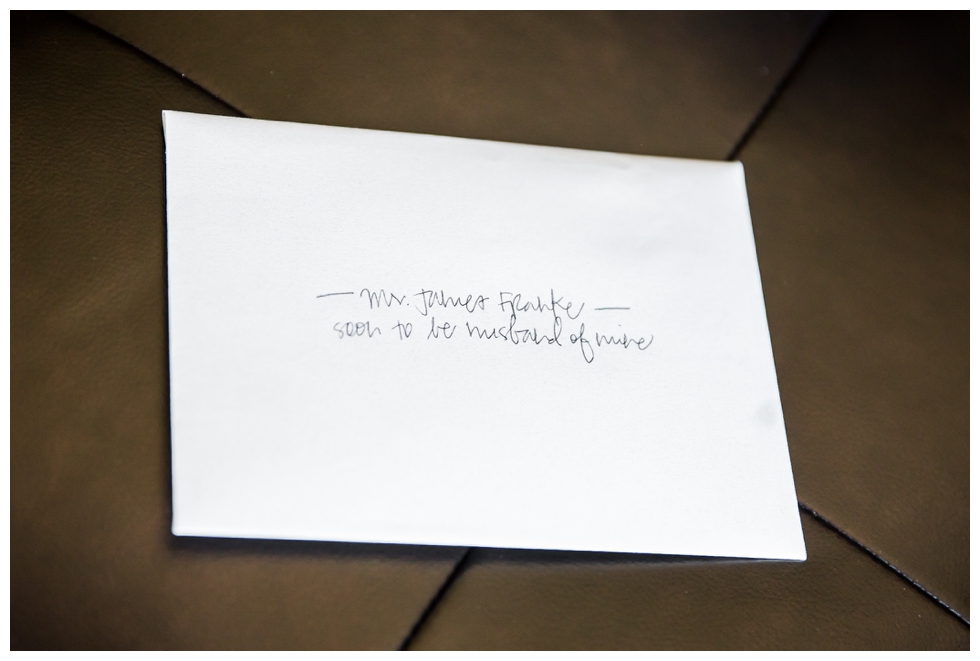 — Mr. James Franke —
soon to be husband of mine